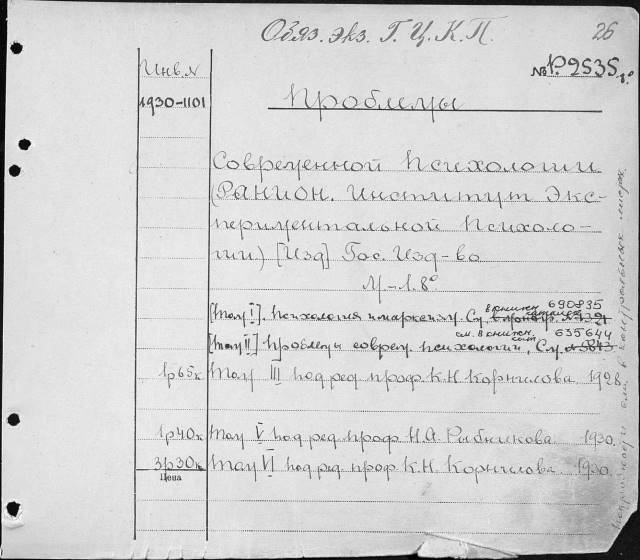 Обяз. экз. Г. Ц. К. П.
26
Инв. N
№ Р.2535 8°
1930-1101
Проблемы
Современной Психологии
(РАНИОН. Институт Экс-
периментальной Психоло-
гии) [Изд] Гос. Изд-во
М-Л. 8°
[том I]. Психология и марксизм. См. в книжн. 690835
[том II] Проблемы соврем. психологии, См. в книжн. 635644
1р65к Том III под ред проф. К.Н. Корнилова. 1928.
1р40к Том V под ред проф Н.А. Рыбникова. 1930.
3р30к Том VI под ред проф К.Н. Корнилова. 1930.
Цена